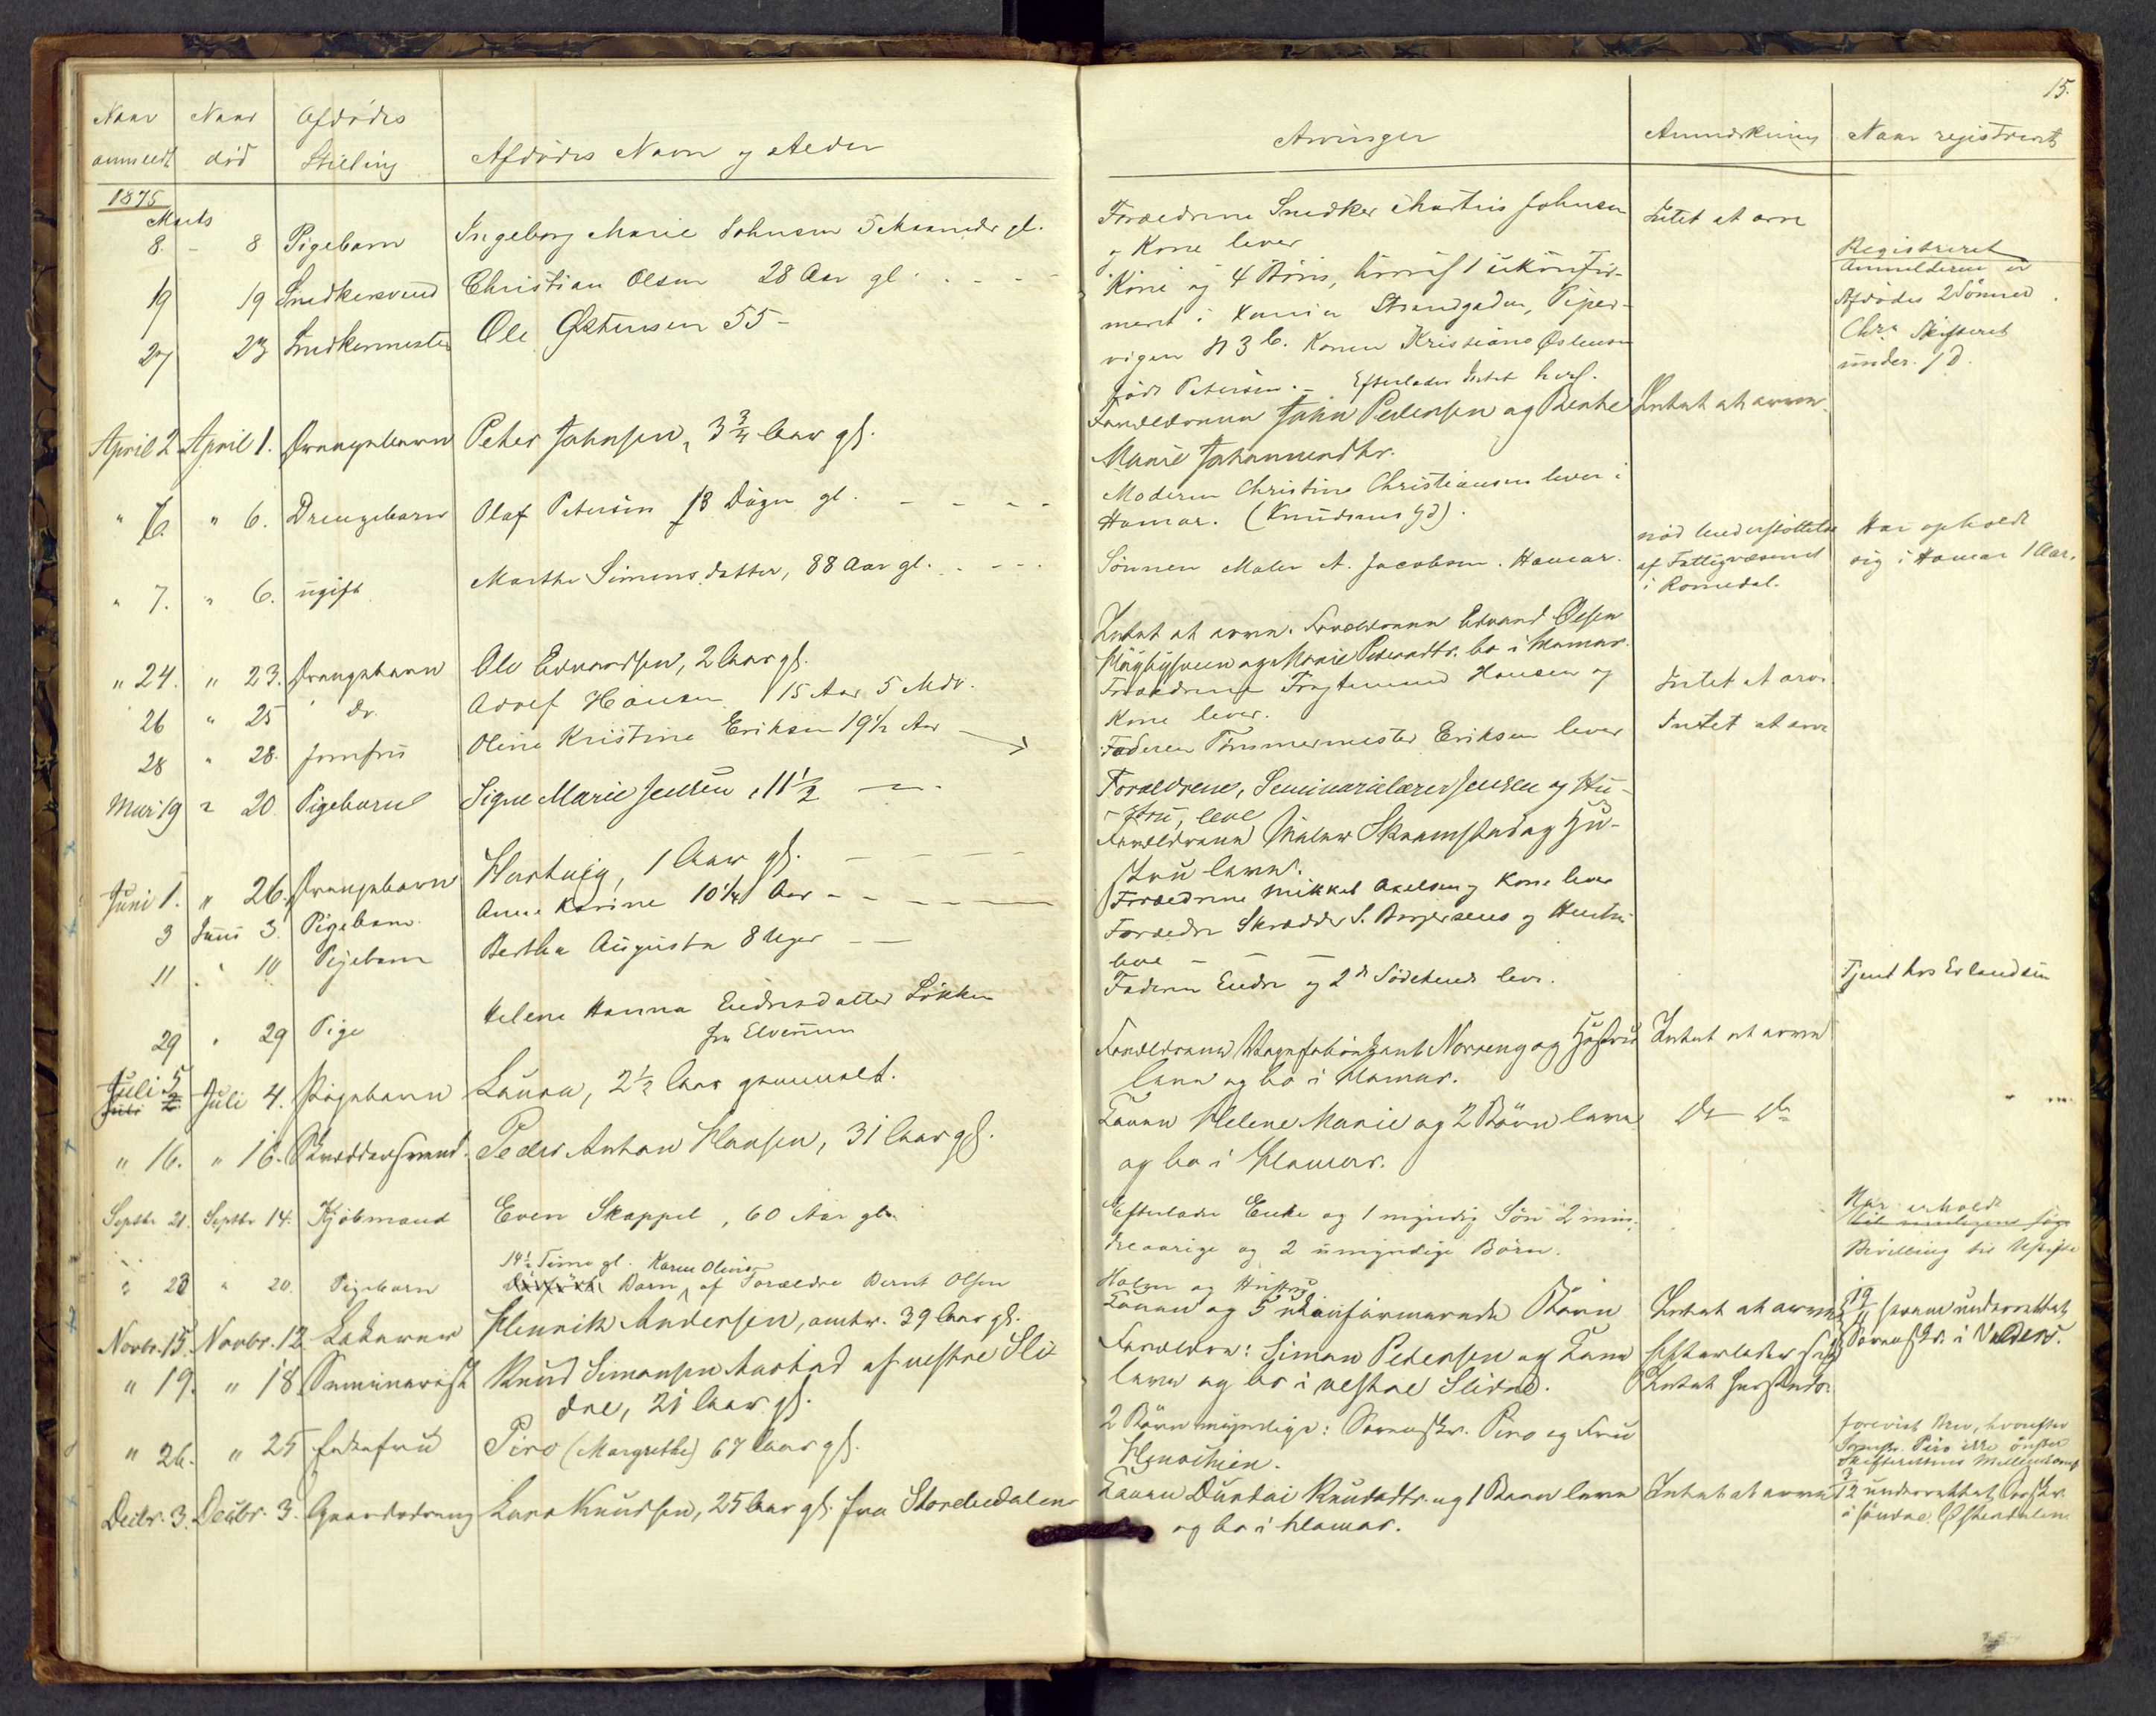 15.
Naar anmeldt
Naar død
Afdødes Stilling
Afdødes Navn og Alder
Arvinger
Anmerkning
Naar registreret
1875
Marts
8. - 8 Pigebarn Ingeborg Marie Johnsen 5 Maaneder gl.
Forældrene Snedker Martin Johnsen
og Kone lever
Intet at arve
19 19 Snedkersvend Christian Olsen 28 Aar gl. - - -
Kone og 4 Børn, hvoraf 1 ukonfir-
27 23 Snedkermester Ole Østensen 55 -
meret i Xania Strandgaden, Piper-
vigen N 3 b. Konen Kristiane Østensen
født Petersen. - Efterlader Intet her.
Registreret
Anmelderen er
Afdødes 2 Sønner
Chra. Skifteret
under. /D.
April 2 April 1. Drengebarn Peter Johnsen, 3 3/4 Aar gl.
Forældrene John Pedersen og Bente
Marie Johannesdtr.
Intet at arve.
" 6. " 6. Drengebarn Olaf Petersen 13 Dage gl. - - - -
Moderen Christine Christiansen lever i
Hamar. (Knudsens Gd).
" 7. " 6. ugift Marthe Simensdatter, 88 Aar gl. - - -
Sønnen Maler A. Jacobsen. Hamar.
nød Understøttelse
af Fattigvæsenet
i Romedal.
Har opholdt
sig i Hamar 1 Aar.
" 24. " 23. Drengebarn Ole Edvardsen, 2 Aar gl.
Intet at arve. Forældrene Edvard Olsen
og Marie Pedersdtr. bo i Hamar.
26 " 25 Do. Adolf Hansen 15 Aar 5 Mdr.
Forældrene Fragtemand Hansen og
Kone lever.
Intet at arve
28 " 28. Jomfru Oline Kristine Eriksen 19 1/2 Aar
Faderen Tømmermester Eriksen lever
Intet at arve
Mai 19 " 20 Pigebarn Signe Marie Jensen, 11 1/2 -
Forældrene, Seminarielærer Jensen og Hu-
stru, leve
Juni 1. " 26. Drengebarn Hartvig, 1 Aar gl. - - - -
Forældrene Maler Skramstad og Hu-
stru leve.
3 Juni 3. Pigebarn Anne Karine 10 1/4 Aar - - - -
Forældrene Mikkel Axelsen og Kone lever
11 " 10 Pigebarn Bertha Augusta 8 Uger - -
Forældre Skrædder S. Borgersens og Hustru
leve - - -
29 " 29 Pige Helene Hanna Endresdatter Løkken
fra Elverum
Faderen Endre og 2de Sødskende leve.
Tjent hos Erlandsen
Juli 5 Juli 4. Pigebarn Laura, 2 1/2 Aar gammelt.
Forældrene Vognfabrikant Norseng og Hustru
leve og bo i Hamar.
Intet at arve
" 16. " 16. Skræddersvend. Peder Anton Hansen, 31 Aar gl.
Konen Helene Marie og 2 Børn leve
og bo i Hamar.
do do
Septbr 21. Septbr 14. Kjøbmand Even Skappel, 60 Aar gl.
Efterlader Enke og 1 myndig Søn 2 min-
dreaarige og 2 umyndige Børn.
Har erholdt
Bevilling til Uskifte
" 23 " 20. Pigebarn
14 1/2 Time gl. Karen Oline
Barn af Forældre Bernt Olsen
Holen og Hustru
Novbr. 15. Novbr. 12. Henrik Andersen, omtr. 39 Aar gl.
Konen og 5 ukonfirmerede Børn
Intet at arve
19/11 underrettet
Sorenskr. i Valders.
" 19. " 18 Seminarist Knud Simonsen Aastad af vestre Sli-
dre, 21 Aar gl.
Forældre: Simon Pedersen og Kone
leve og bo i vestre Slidre.
Efterlader sig
Intet
" 26. " 25 Enkefru Piro (Margrethe) 67 Aar gl.
2 Børn myndige: Sorenskr. Piro og Fru
Henschien.
forevist Brev, hvorefter
Sorenskr. Piro ikke ønsker
Skifterettens Mellemkomst
Decbr. 3. Decbr. 3. Gaardsdreng Lars Knudsen, 25 Aar gl. fra Storelvedalen
Konen Durdei Knudsdtr. og 1 Barn leve
og bo i Hamar.
Intet at arve
3/12 underrettet Sorskr.
i søndre Østerdalen.